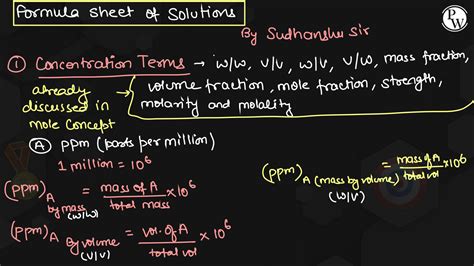 Formula sheet of Solutions
PW
By Sudhanshu Sir
① Concentration Terms → w/w, v/v, w/v, v/w, mass fraction,
volume fraction, mole fraction, strength,
molarity and molality
already
discussed in
mole Concept
Ⓐ ppm (parts per million)
1 million = 10⁶
(ppm)A by mass (w/w) = mass of A / total mass × 10⁶
(ppm)A by volume (v/v) = vol. of A / total vol × 10⁶
(ppm)A (mass by volume) (w/v) = mass of A / total vol × 10⁶